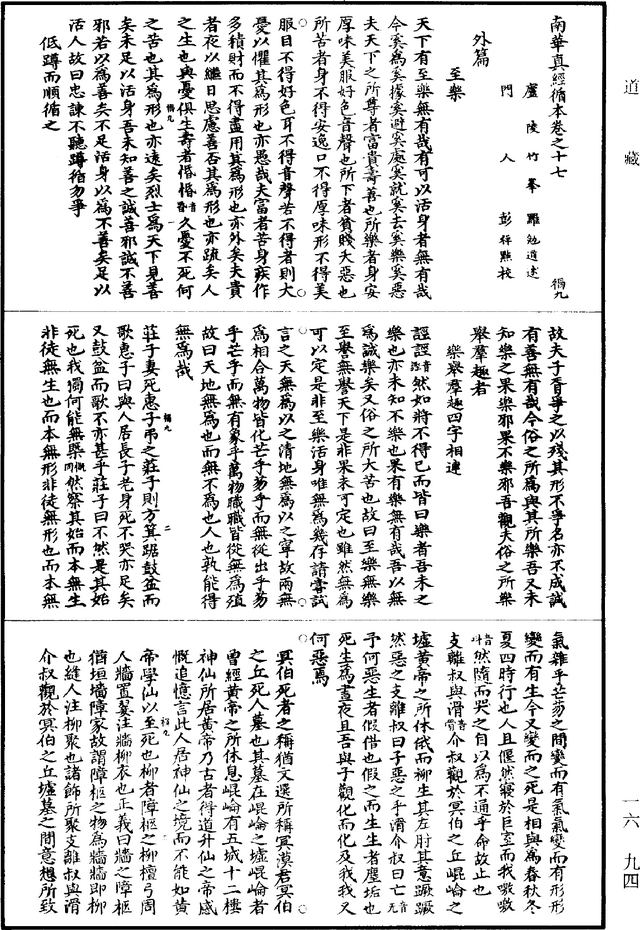 道藏
南華真經循本卷之十七 禍九
廬陵竹峯羅勉道述
門人彭祥點校
外篇
至樂
天下有至樂無有哉有可以活身者無有哉
今奚為奚據奚避奚處奚就奚去奚樂奚惡
夫天下之所尊者富貴壽善也所樂者身安
厚味美服好色音聲也所下者貧賤夭惡也
所苦者身不得安逸口不得厚味形不得美
服目不得好色耳不得音聲苦不得者則大
憂以懼其為形也亦愚哉夫富者苦身疾作
多積財而不得盡用其為形也亦外矣夫貴
者夜以繼日思慮善否其為形也亦疏矣人
之生也與憂俱生壽者惛惛音昏久憂不死何
禍九 一
之苦也其為形也亦遠矣烈士為天下見善
矣未足以活身吾未知善之誠善邪誠不善
邪若以為善矣不足活身以為不善矣足以
活人故曰忠諫不聽蹲循勿爭
低蹲而順循之
故夫子胥爭之以殘其形不爭名亦不成誠
有善無有哉今俗之所為與其所樂吾又未
知樂之果樂邪果不樂邪吾觀夫俗之所樂
舉羣趣者
樂舉羣趣四字相連
誙誙然如將不得已而皆曰樂者吾未之
樂也亦未知不樂也果有樂無有哉吾以無
為誠樂矣又俗之所大苦也故曰至樂無樂
至譽無譽天下是非果未可定也雖然無為
可以定是非至樂活身唯無為幾存請嘗試
言之天無為以之清地無為以之寧故兩無
為相合萬物皆化芒乎芴乎而無從出乎芴
乎芒乎而無有象乎萬物職職皆從無為殖
故曰天地無為也而無不為也人也孰能得
無為哉
禍九 二
莊子妻死惠子弔之莊子則方箕踞鼓盆而
歌惠子曰與人居長子老身死不哭亦足矣
又鼓盆而歌不亦甚乎莊子曰不然是其始
死也我獨何能無槩然察其始而本無生
非徒無生也而本無形非徒無形也而本無
氣雜乎芒芴之間變而有氣氣變而有形形
變而有生今又變而之死是相與為春秋冬
夏四時行也人且偃然寢於巨室而我噭噭
然隨而哭之自以為不通乎命故止也
支離叔與滑介叔觀於冥伯之丘崐崘之
墟黃帝之所休俄而柳生其左肘其意蹶蹶
然惡之支離叔曰子惡之乎滑介叔曰亡音無
予何惡生者假借也假之而生生者塵垢也
死生為晝夜且吾與子觀化而化及我我又
何惡焉
冥伯死者之稱猶文選所稱冥漠君冥伯
之丘死人墓也其墓在崐崘之墟崐崘者
曾經黃帝之所休息崐崘有五城十二樓
神仙所居黃帝乃古者得道升仙之帝感
慨追憶言此人居神仙之境而不能如黃
帝學仙以至死也柳者障柩之柳檀弓周
人牆置翣注牆柳衣也正義曰牆之障柩
猶垣墻障家故謂障柩之物為牆牆即柳
也縫人注柳聚也諸飾所聚支離叔與滑
介叔觀於冥伯之丘墟墓之間意想所致
一六 九四